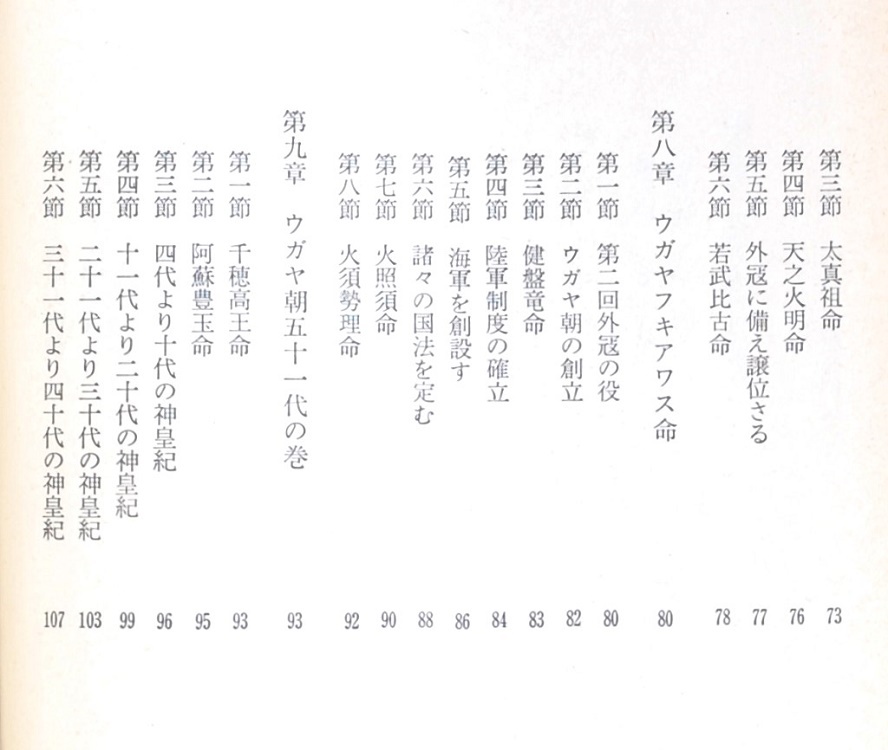 第三節 太真祖命 73
第四節 天之火明命 76
第五節 外冦に備え譲位さる 77
第六節 若武比古命 78
第八章 ウガヤフキアワス命 80
第一節 第二回外冦の役 80
第二節 ウガヤ朝の創立 82
第三節 健盤竜命 83
第四節 陸軍制度の確立 84
第五節 海軍を創設す 86
第六節 諸々の国法を定む 88
第七節 火照須命 90
第八節 火須勢理命 92
第九章 ウガヤ朝五十一代の巻 93
第一節 千穂高王命 93
第二節 阿蘇豊玉命 95
第三節 四代より十代の神皇紀 96
第四節 十一代より二十代の神皇紀 99
第五節 二十一代より三十代の神皇紀 103
第六節 三十一代より四十代の神皇紀 107